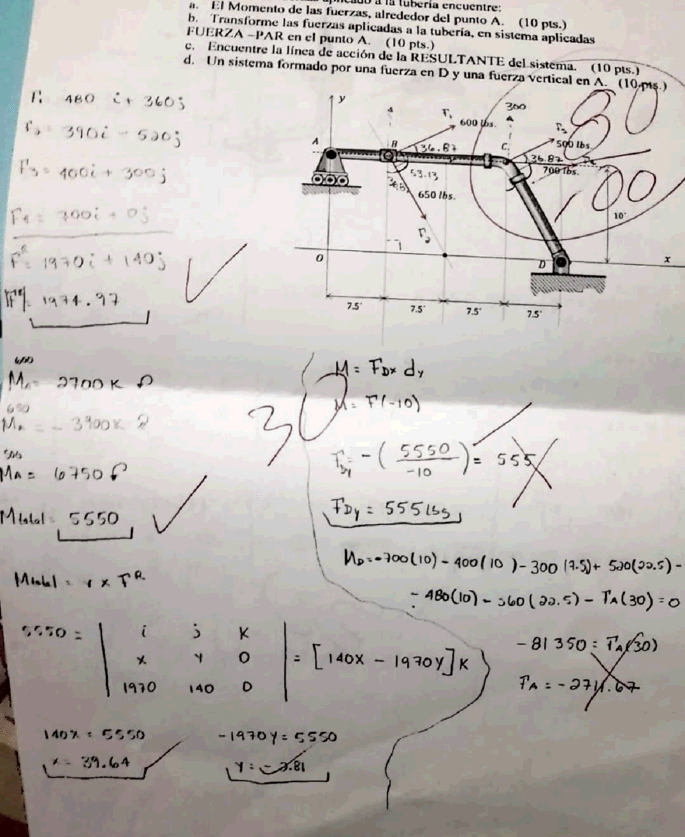 a la tubería encuentre:
a. El Momento de las fuerzas, alrededor del punto A. (10 pts.)
b. Transforme las fuerzas aplicadas a la tubería, en sistema aplicadas
FUERZA –PAR en el punto A. (10 pts.)
c. Encuentre la línea de acción de la RESULTANTE del sistema. (10 pts.)
d. Un sistema formado por una fuerza en D y una fuerza vertical en A. (10 pts.)
480 i + 360j
390i - 520j
F3 = 400i + 300j
F4 = 700i + 0j
F = 1970i + 140j
1974.97
y
300
F1
600 lbs.
F3
500 lbs.
A
B
36.87
C
36.87
700 lbs.
53.13
650 lbs.
F2
10'
O
D
x
7.5'
7.5'
7.5'
7.5'
80
100
30
600
MA= 2700 K
650
MA = - 3900K
500
MA = 6750
Mtotal = 5550
Mtotal = r x F^R
5550 =
i j K
x y 0
1970 140 0
= [140X - 1970Y] K
140x = 5550
x = 39.64
-1970Y = 5550
Y = -2.81
M = FDx dy
M = F(-10)
FDy - ( 5550 / -10 ) = 555
FDy = 555 lbs
MD = -700(10) - 400(10) - 300(7.5) + 520(22.5) -
- 480(10) - 360(22.5) - FA(30) = 0
-81 350 = FA(30)
FA = -2711.67